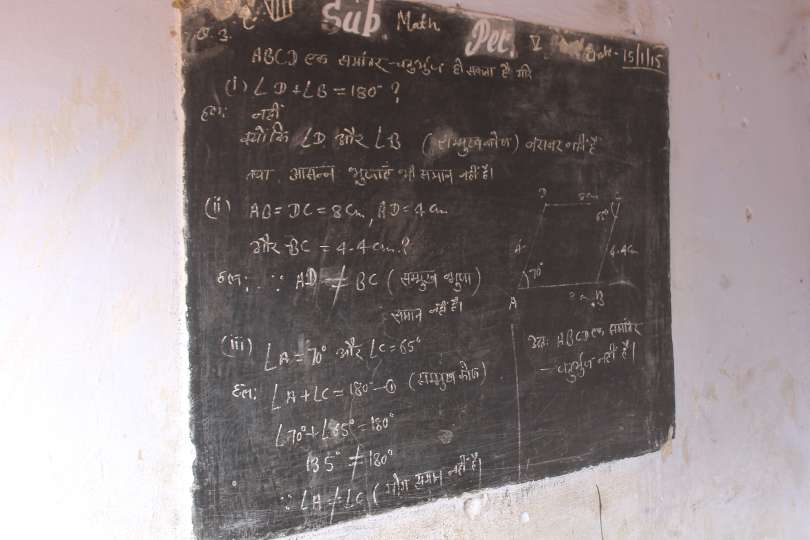 VIII Sub. Math Per. V Date - 15/1/15
Q. 3.
ABCD एक समांतर - चतुर्भुज हो सकता है यदि
(i) ∠D + ∠B = 180° ?
हल: नहीं
क्योंकि ∠D और ∠B (सम्मुख कोण) बराबर नहीं है
तथा आसन्न भुजाएं भी समान नहीं है।
(ii) AB = DC = 8 cm, AD = 4 cm
और BC = 4.4 cm. ?
हल: ∵ AD ≠ BC (सम्मुख भुजा)
समान नहीं है।
(iii) ∠A = 70° और ∠C = 65°
हल: ∠A + ∠C = 180° - ① (सम्मुख कोण)
∠70° + ∠65° = 180°
135° ≠ 180°
∵ ∠A ≠ ∠C ( समान नहीं है।
D 8 cm C
65°
4.4 cm
70°
A B
अतः ABCD एक समांतर
- चतुर्भुज नहीं है।